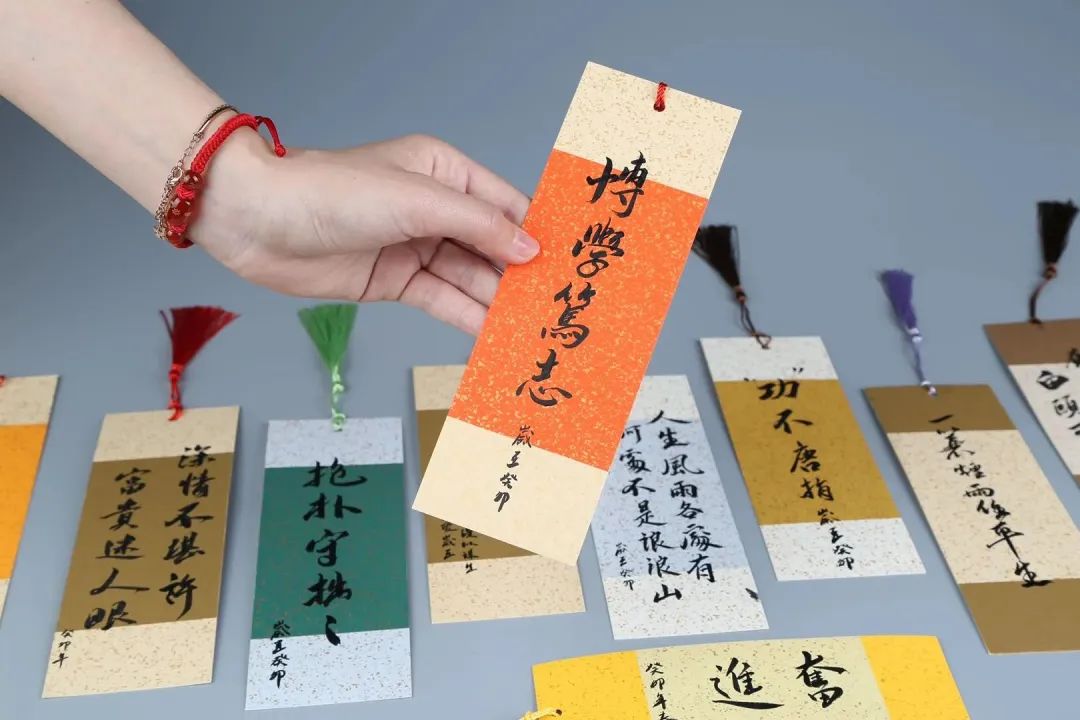 博學篤志
歲在癸卯
深情不堪許
富貴迷人眼
癸卯年
抱朴守拙
歲在癸卯
人生風雨各處有
何處不是浪浪山
歲在癸卯
“功”不唐捐
歲在癸卯
一蓑煙雨任平生
白頭
奮進
癸卯年